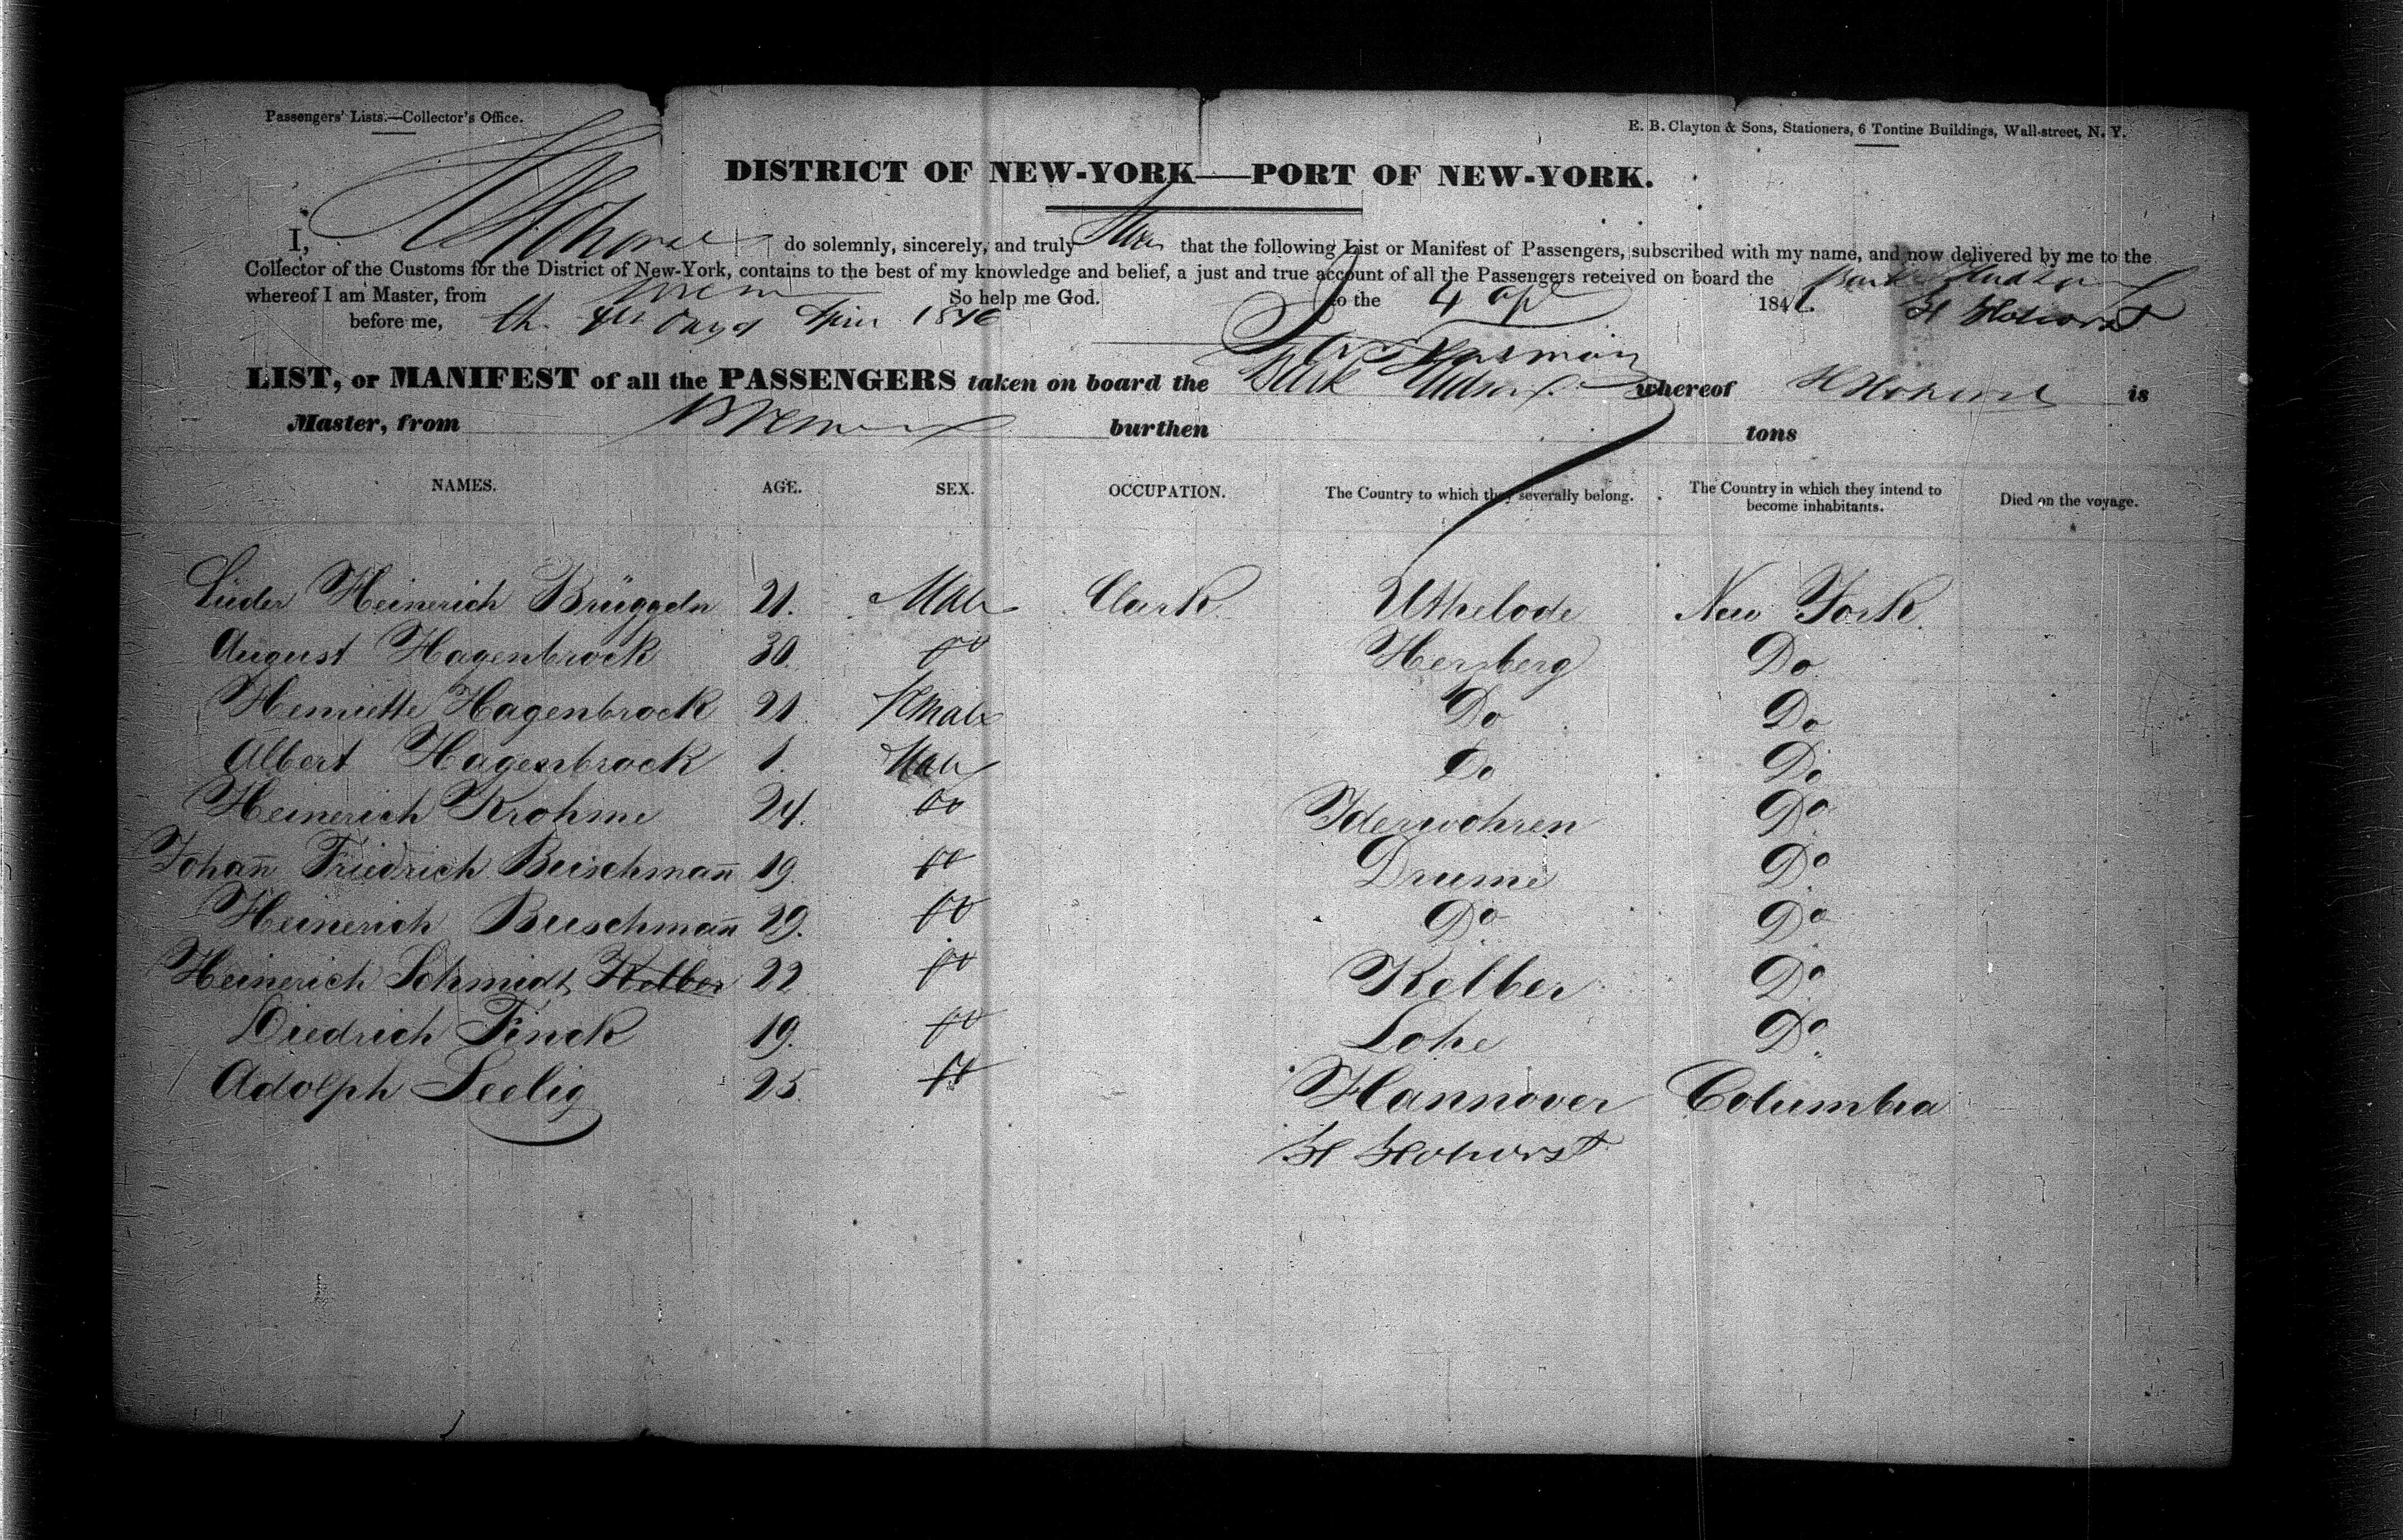 Passengers' Lists.—Collector's Office.
E. B. Clayton & Sons, Stationers, 6 Tontine Buildings, Wall-street, N. Y.
DISTRICT OF NEW-YORK—PORT OF NEW-YORK.
I, do solemnly, sincerely, and truly that the following List or Manifest of Passengers, subscribed with my name, and now delivered by me to the
Collector of the Customs for the District of New-York, contains to the best of my knowledge and belief, a just and true account of all the Passengers received on board the Bark Hudson
whereof I am Master, from Bremen So help me God. to the 4 apl 1846.
H Hohorst
before me, 1846
LIST, or MANIFEST of all the PASSENGERS taken on board the Bark Hudson whereof H Hohorst is
Master, from Bremen burthen tons
NAMES. AGE. SEX. OCCUPATION. The Country to which they severally belong. The Country in which they intend to become inhabitants. Died on the voyage.
Lüder Heinerich Brüggeln 21. Male Clark Uthelode New York.
August Hagenbrock 30. do Herzberg Do
Henriette Hagenbrock 21. Female Do Do
Albert Hagenbrock 1. Male Do Do
Heinerich Krohme 24. do Iderwohren Do
Johan̄ Friedrich Buschman̄ 19. do Drume Do
Heinerich Buschman̄ 29. do Do Do
Heinerich Schmidt Kelber 22 do Kelber Do
Diedrich Finck 19. do Lohe Do
Adolph Seelig 25. do Hannover Columbia
H Hohorst